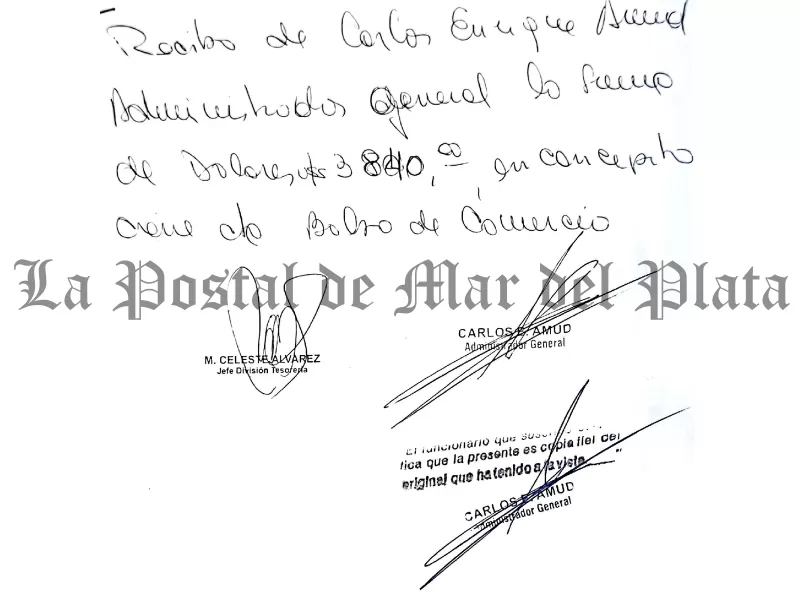 Recibo de Carlos Enrique Amud
Administrador General la suma
de Dolares u$s 3840,00, en concepto
cierre cta Bolsa de Comercio
La Postal de Mar del Plata
M. CELESTE ALVAREZ
Jefe División Tesorería
CARLOS E. AMUD
Administrador General
El funcionario que
fica que la presente es copia fiel del
original que ha tenido a la vista"
CARLOS E. AMUD
Administrador General